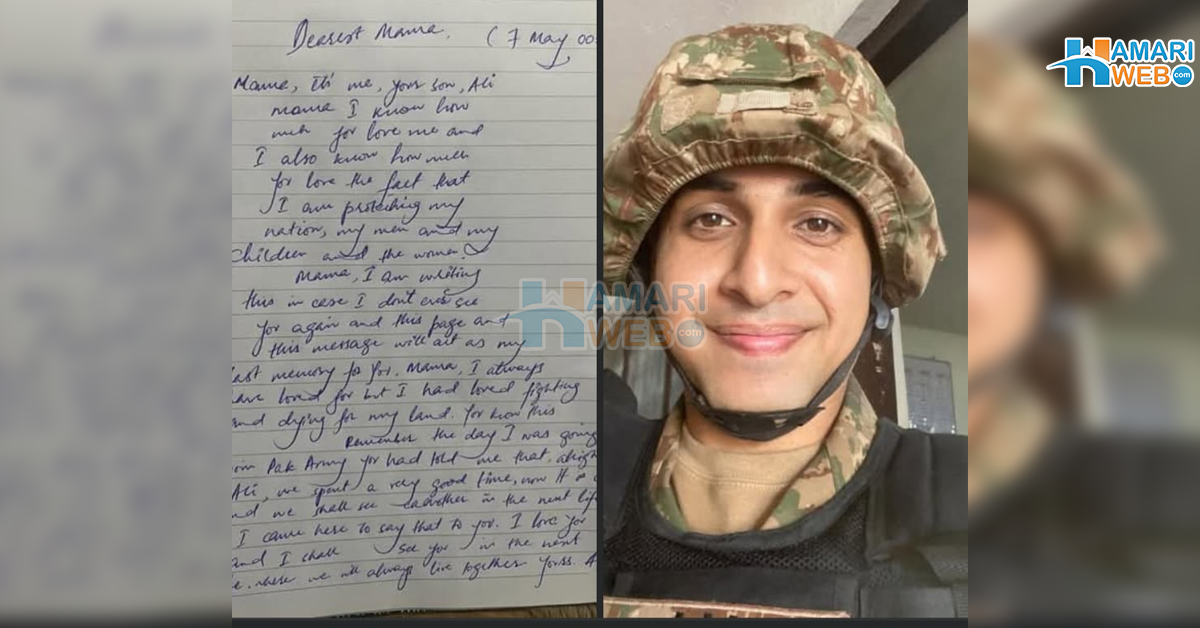 Dearest Mama,
(7 May 00
Mama, It's me, your son, Ali
mama I know how
much you love me and
I also know how much
you love the fact that
I am protecting my
nation, my men and my
children and the women.
Mama, I am writing
this in case I don't ever see
you again and this page and
this message will act as my
last memory for you. Mama, I always
have loved you but I had loved fighting
and dying for my land. You know this
Remember the day I was going
Pak Army you had told me that, alright
Ali, we spent a very good time, now it is
and we shall see eachother in the next life
I came here to say that to you. I love you
and I shall see you in the next
where we will always live together Yours. A
HAMARI
WEB.com
HAMARI
WEB.com